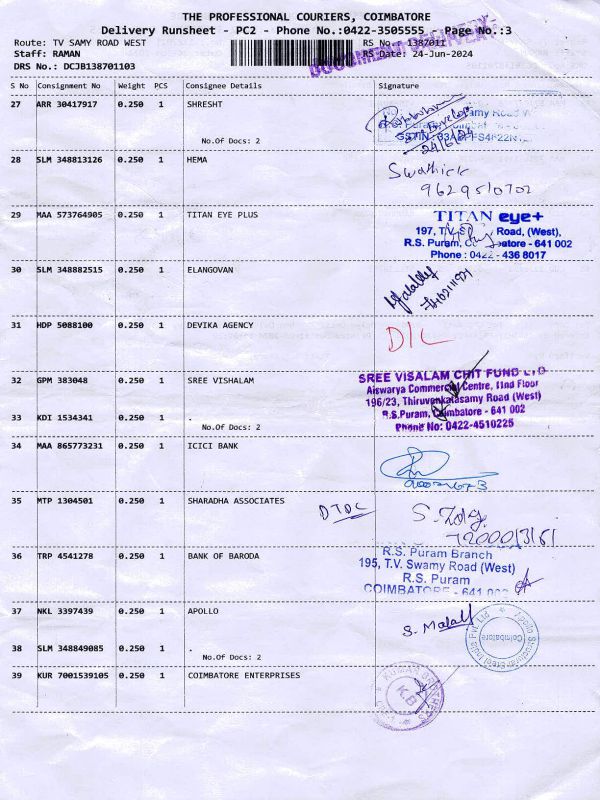 THE PROFESSIONAL COURIERS, COIMBATORE
Delivery Runsheet - PC2 - Phone No.:0422-3505555 - Page No.:3
Route: TV SAMY ROAD WEST RS No. 1387011
Staff: RAMAN RS Date: 24-Jun-2024
DRS No.: DCJB138701103
DOCUMENT DELIVERY
S No Consignment No Weight PCS Consignee Details Signature
27 ARR 30417917 0.250 1 SHRESHT
No.Of Docs: 2
24/6/24
28 SLM 348813126 0.250 1 HEMA
Swathick
9629510702
29 MAA 573764905 0.250 1 TITAN EYE PLUS
TITAN eye+
197, T.V.S Road, (West),
R.S. Puram, Coimbatore - 641 002
Phone : 0422 - 436 8017
30 SLM 348882515 0.250 1 ELANGOVAN
31 HDP 5088100 0.250 1 DEVIKA AGENCY
D/L
32 GPM 383048 0.250 1 SREE VISHALAM
SREE VISALAM CHIT FUND LTD
Aiswarya Commercial Centre, IInd Floor
196/23, Thiruvenkatasamy Road (West)
R.S.Puram, Coimbatore - 641 002
Phone No: 0422-4510225
33 KDI 1534341 0.250 1 .
No.Of Docs: 2
34 MAA 865773231 0.250 1 ICICI BANK
35 MTP 1304501 0.250 1 SHARADHA ASSOCIATES
DTDC
36 TRP 4541278 0.250 1 BANK OF BARODA
R.S. Puram Branch
195, T.V. Swamy Road (West)
R.S. Puram
COIMBATORE - 641 002
37 NKL 3397439 0.250 1 APOLLO
Apollo Structural Steel India Pvt. Ltd
Coimbatore
38 SLM 348849085 0.250 1 .
No.Of Docs: 2
39 KUR 7001539105 0.250 1 COIMBATORE ENTERPRISES
KUMAR BROTHERS
K.B